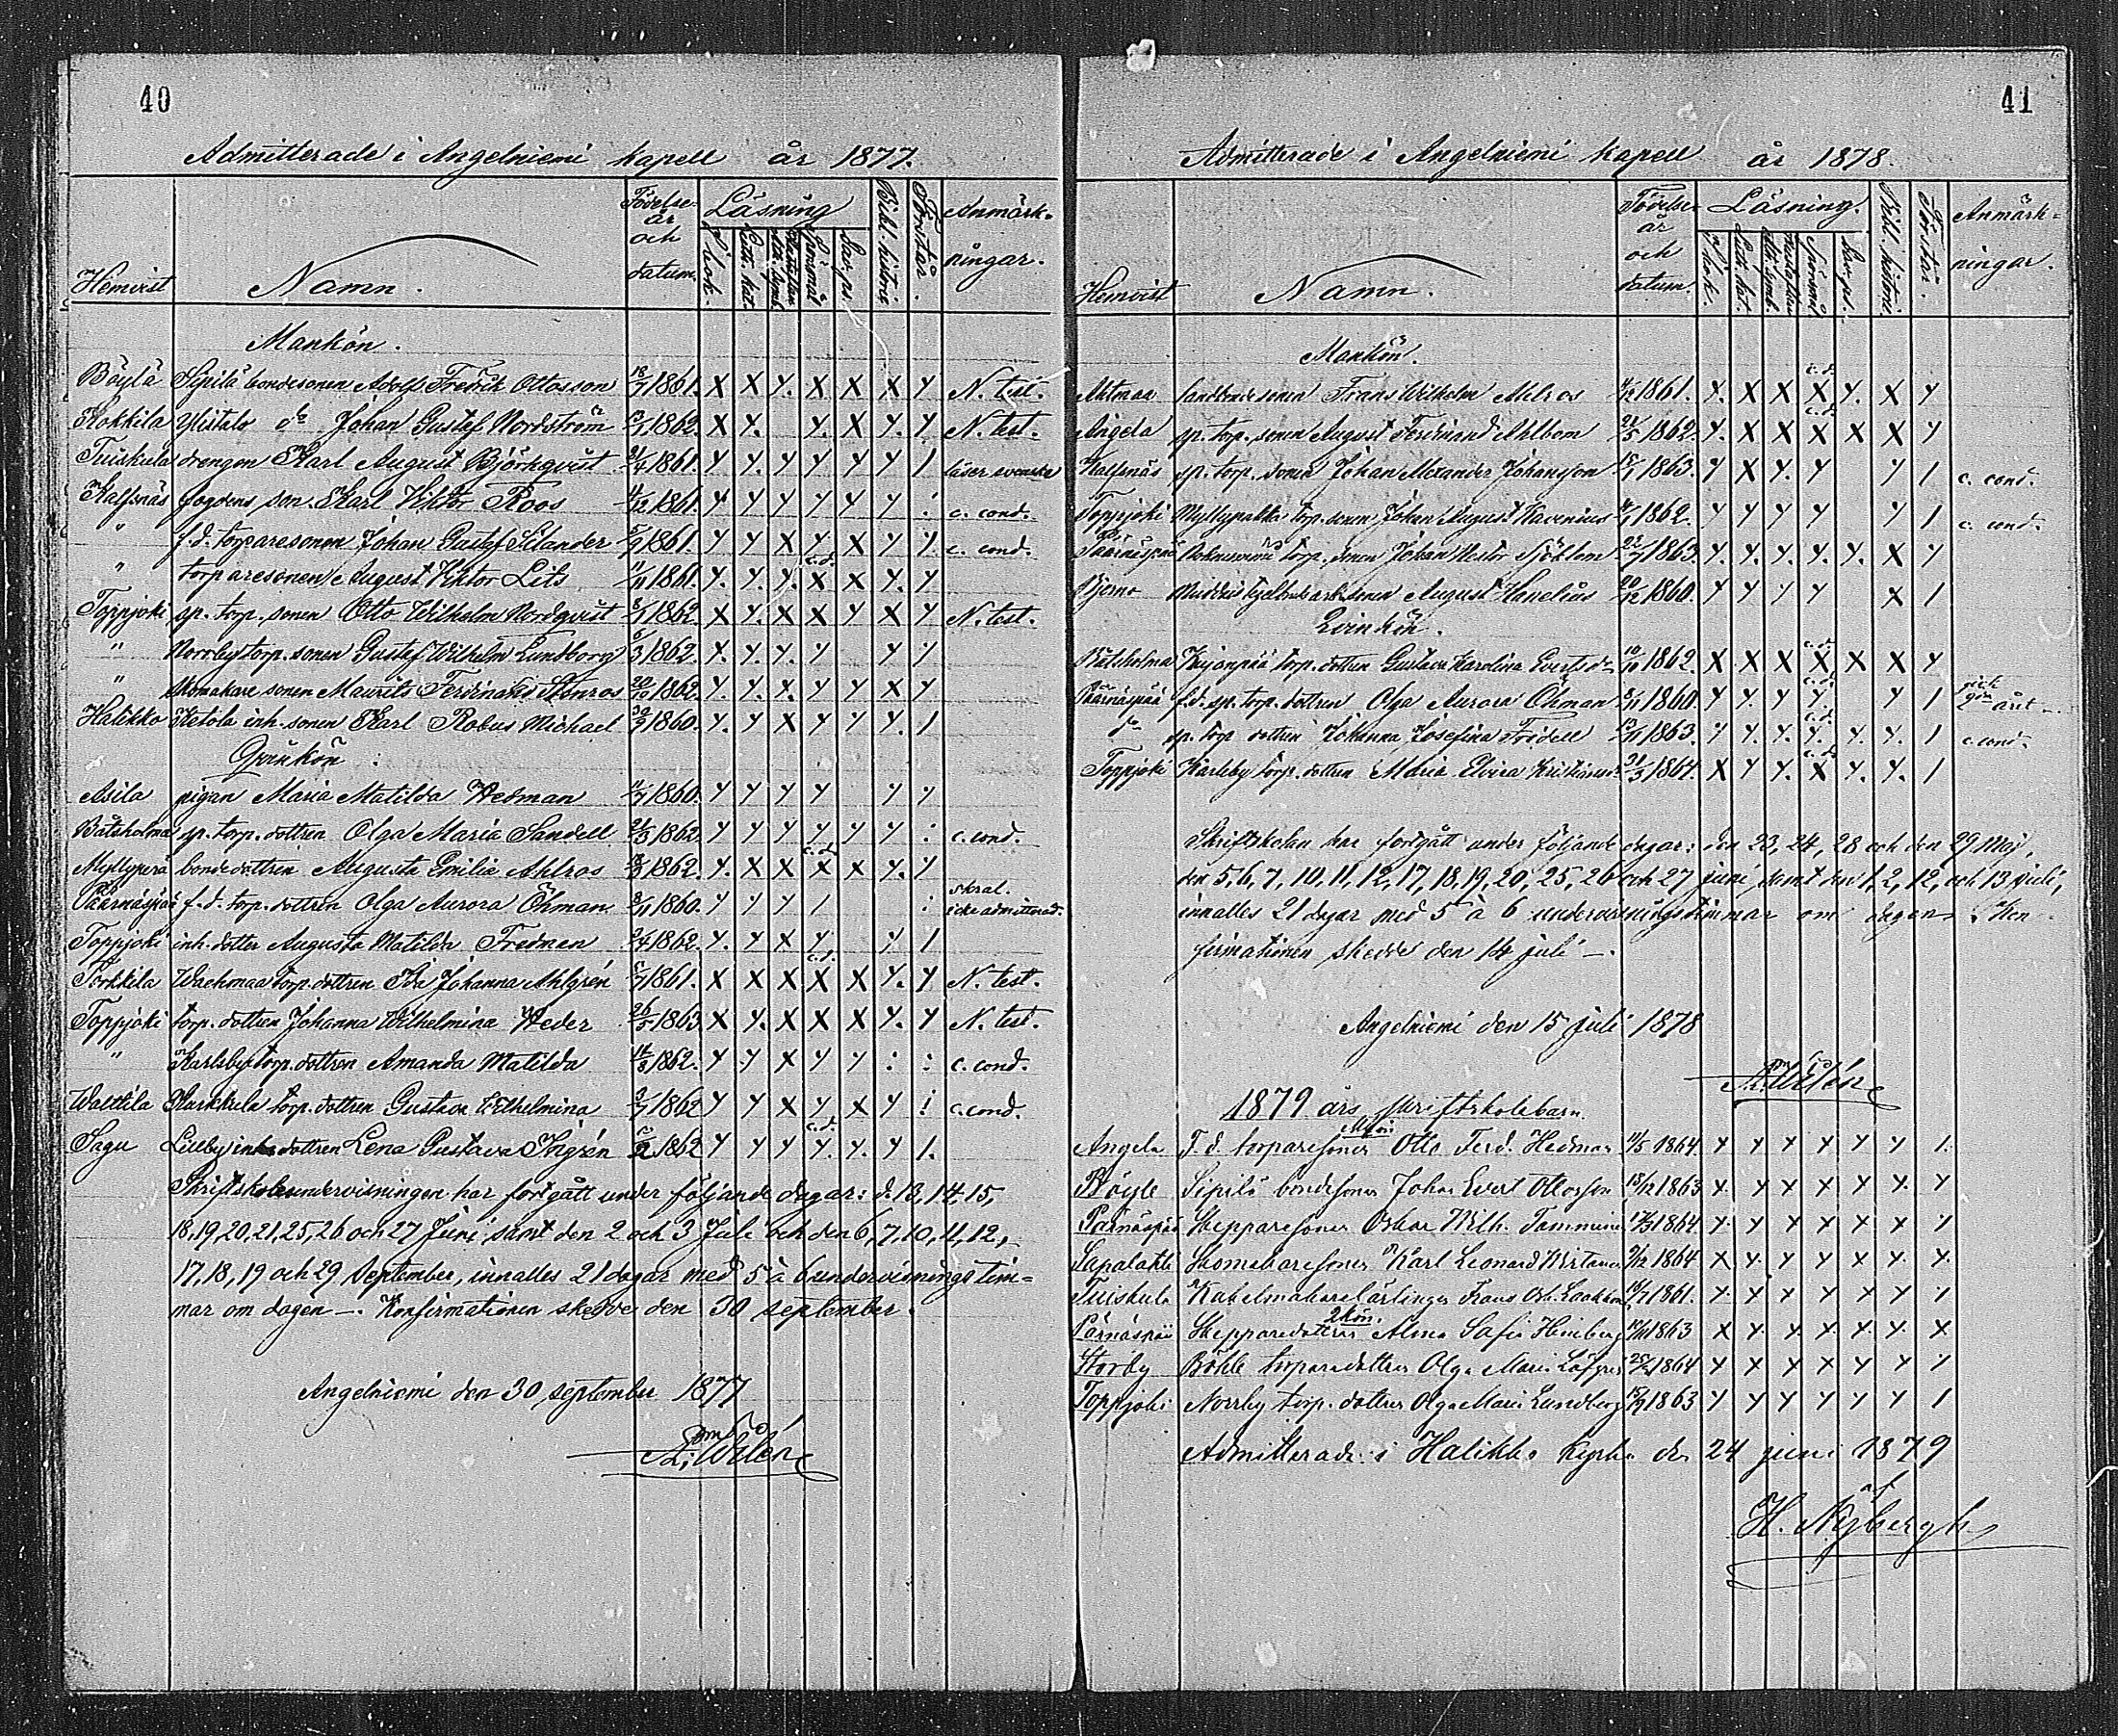 40
Admitterade i Angelniemi kapell år 1877.
Hemvist Namn. Födelse år och datum. Läsning Bibl. historie Förstår. Anmärkningar.
Mankön.
Böylä Sipilä bondesonen Adolf Fredrik Ottosson 1861. X X Y. X X X Y N. test.
Kokkila Ylistalo do Johan Gustef Nordström 1862. X Y. Y. X Y. Y N. test.
Tuiskula drengen Karl August Björkqvist 1861. Y Y Y Y Y Y 1 läser svenska
Kalfsnäs fogdens son Karl Viktor Roos 1861. Y Y Y Y Y Y : c. cond.
" f. d. torparesonen Johan Gustaf Silander 1861. Y Y X Y X Y Y. c. cond.
" torparesonen August Viktor Lits 11/11 1861. Y. Y. Y. X X Y. Y.
Toppjoki sp. torp. sonen Otto Wilhelm Nordqvist 1862. X Y. X X Y X Y N. test.
" Norrby torp. sonen Gustef Wilhelm Lundborg 1862. Y. Y. Y. Y Y Y
" Skomakare sonen Maurits Ferdinand Stenros 1862. Y. Y. X. Y Y X Y
Halikko Ketola inh. sonen Karl Robus Michael 1860. Y. Y X Y Y Y. 1
Qvinkön :
Asila pigan Maria Matilda Hedman 1860. Y Y Y Y Y Y
Båtsholma sp. torp. dottren Olga Maria Sandell 1862 Y Y Y Y Y Y : c. cond.
Myllyperä bondedottren Augusta Emilia Ahlros 1862. Y. X X X X Y. Y
Päärnäspää f. d. torp. dottren Olga Aurora Öhman 1860. Y Y Y 1 : icke admitterad.
Toppjoki inh. dotter Augusta Matilda Fredman 1862. Y. Y X Y. Y 1
Torkkila Wachmaa torp. dottren Ida Johanna Ahlgrén 1861. X X X X X Y. Y N. test.
Toppjoki torp. dottren Johanna Wilhelmina Heder 26/5 1863 X Y. X X X Y. Y N. test.
" Karlsby torp. dottren Amanda Matilda 1862. Y Y X Y Y : : c. cond.
Walttila Karkkula torp. dottren Gustava Wilhelmina 1862 Y Y X Y. X Y : c. cond.
Sagu Lillby inh. dottren Lena Gustava Ingrén 1862 Y Y Y Y. Y. Y 1.
Skriftskolsundervisningen har fortgått under följande dagar: d. 13, 14, 15,
18, 19, 20, 21, 25, 26 och 27 Juni samt den 2 och 3 Juli och den 6, 7, 10, 11, 12,
17, 18, 19 och 29 September, innalles 21 dagar med 5 à 6 undervisnings tim-
mar om dagen —. Konfirmationen skedde den 30 september.
Angelniemi den 30 september 1877
A. Wilén
41
Admitterade i Angelniemi kapell år 1878.
Hemvist Namn. Födelse år och datum. Läsning. Bibl. historie. Förstår. Anmärkningar.
Mankön.
Ahtmaa landbondesonen Frans Wilhelm Ahlros 1861. Y. X X X Y. X Y
Angela sp. torp. sonen August Ferdinand Ahlbom 21/5 1862. Y. X X X X X Y
Kalfsnäs sp. torp. sonen Johan Alexander Johansson 1863. Y X Y. Y Y 1 c. cond.
Toppjoki Myllypakka torp. sonen Johan August Wavenius 1862. Y Y Y Y Y 1 c. cond.
Päärnäspää torp. sonen Johan Nestor Sjöblom 1863. Y. Y. Y. Y. Y. X Y
Bjerno sonen August Hanelius 1860. Y Y Y Y X 1
Qvinkön.
Båtsholma torp. dottren Gustava Karolina Evertsdr 1862 X X X X X X Y
Päärnäspää f. d. sp. torp. dottren Olga Aurora Öhman 1860. Y Y. Y Y Y 1 gick 2dra året
do sp. torp dottren Johanna Josefina Fridell 1863. Y Y. Y. Y. Y. Y. 1 c. cond.
Toppjoki Karlsby torp. dottren Maria Elvira 1864. X Y Y. X Y. Y. 1
Skriftskolan har fortgått under följande dagar: den 23, 24, 28 och den 29 Maj,
den 5, 6, 7, 10, 11, 12, 17, 18, 19, 20, 25, 26 och 27 juni, samt den 1, 2, 12, och 13 juli,
innalles 21 dagar med 5 à 6 undervisningstimmar om dagen. Kon-
firmationen skedde den 14 juli —.
Angelniemi den 15 juli 1878
A. Wilén
1879 års skriftskolebarn.
M.kön.
Angela F. d. torparesonen Otto Ferd. Hedman 11/5 1864. Y Y Y Y Y Y 1.
Böyle Sipilä bondesonen Johan Evert Ottosson 15/12 1863 Y. Y Y Y Y Y. Y
Pärnäspää Skepparesonen Oskar Wilh. Tamminen 1864. Y. Y Y Y Y Y Y
Sapalahti Skomakaresonen Karl Leonard Wirtanen 1864 X Y. Y Y. Y Y. Y.
Tuiskula Kakelmakarelärlingen Frans Osk. 1861. Y. Y Y Y Y Y. Y
Qkön.
Pärnäspää Skepparedottren Alma Sofia Heinberg 1863 X Y. Y. Y. Y. Y. X
Storby Böhle torparedottren Olga Maria Löfgren 1864 Y Y Y Y Y Y Y
Toppjoki Norrby torp. dottren Olga Maria Lundberg 1863 Y Y Y Y Y Y 1
Admitterade i Halikko kyrka den 24 juni 1879
af
H. Nybergh